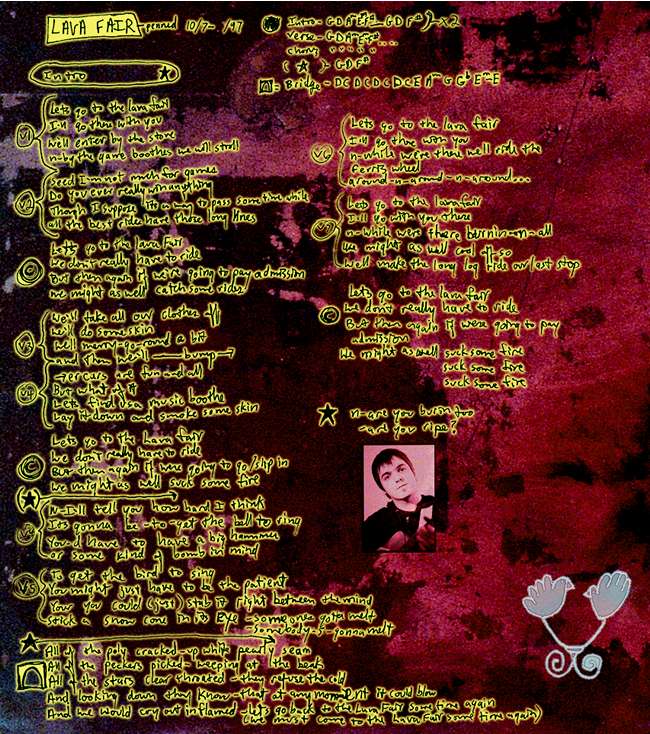 LAVA FAIR -penned 10/7- /97
Intro - G D A E F# G D F# } -x2
verse - G D A
chorus " " " " ....
{ ★ } - G D F#
= Bridge - D C D C D C D C E A G G E E
Intro
V1
Lets go to the lava fair
I'll go there with you
We'll enter by the store
n-by the game boothes we will stroll
Seed I'm not much for games
Do you ever really win anything
Though I suppose its a way to pass some time while
all the best rides have these long lines
C
Lets go to the Lava Fair
We don't really have to ride
But then again if we're going to pay admission
we might as well catch some rides
V3
We'll take all our clothes off
We'll do some skin
We'll merry-go-round a bit
and then we'll bump
V4
-ferries are fun and all
But what of it
Lets find us a music boothe
Lay it down and smoke some skin
C
Lets go to the Lava fair
We don't really have to ride
But then again if we're going to go/slip in
We might as well suck some fire
★
N-I'll tell you how hard I think
Its gonna be-to-get the bell to ring
You'd have to have a big hammer
or some kind of bomb in mind
V5
To get the bird to sing
You might just have to be the patient
You could (just) stab it right between the mind
Stick a snow cone in its Eye -someone gotta melt
-somebody-s gonna melt
★
All of the poly cracked-up whit pearly seam
All of the peckers picked-weeping at the beak
All of the stars clear throated-they refuse the cold
And looking down they know-that at any moment it could blow
And we would cry out inflamed-let's go back to the Lava Fair some time again
(we must come to the Lava Fair some time again)
V6
Lets go to the lava fair
I'll go there with you
n-while were there we'll ride the
ferris wheel
around-n-around-n-around...
Lets go to the lava fair
I'll go with you there
n-while were there burnin-n-all
ya might as well
We'll make the long log ride our last stop
C
Lets go to the lava fair
We don't really have to ride
But then again if were going to pay
admission
We might as well suck some fire
suck some fire
suck some fire
★ n-are you burnin too
-are you ripe?